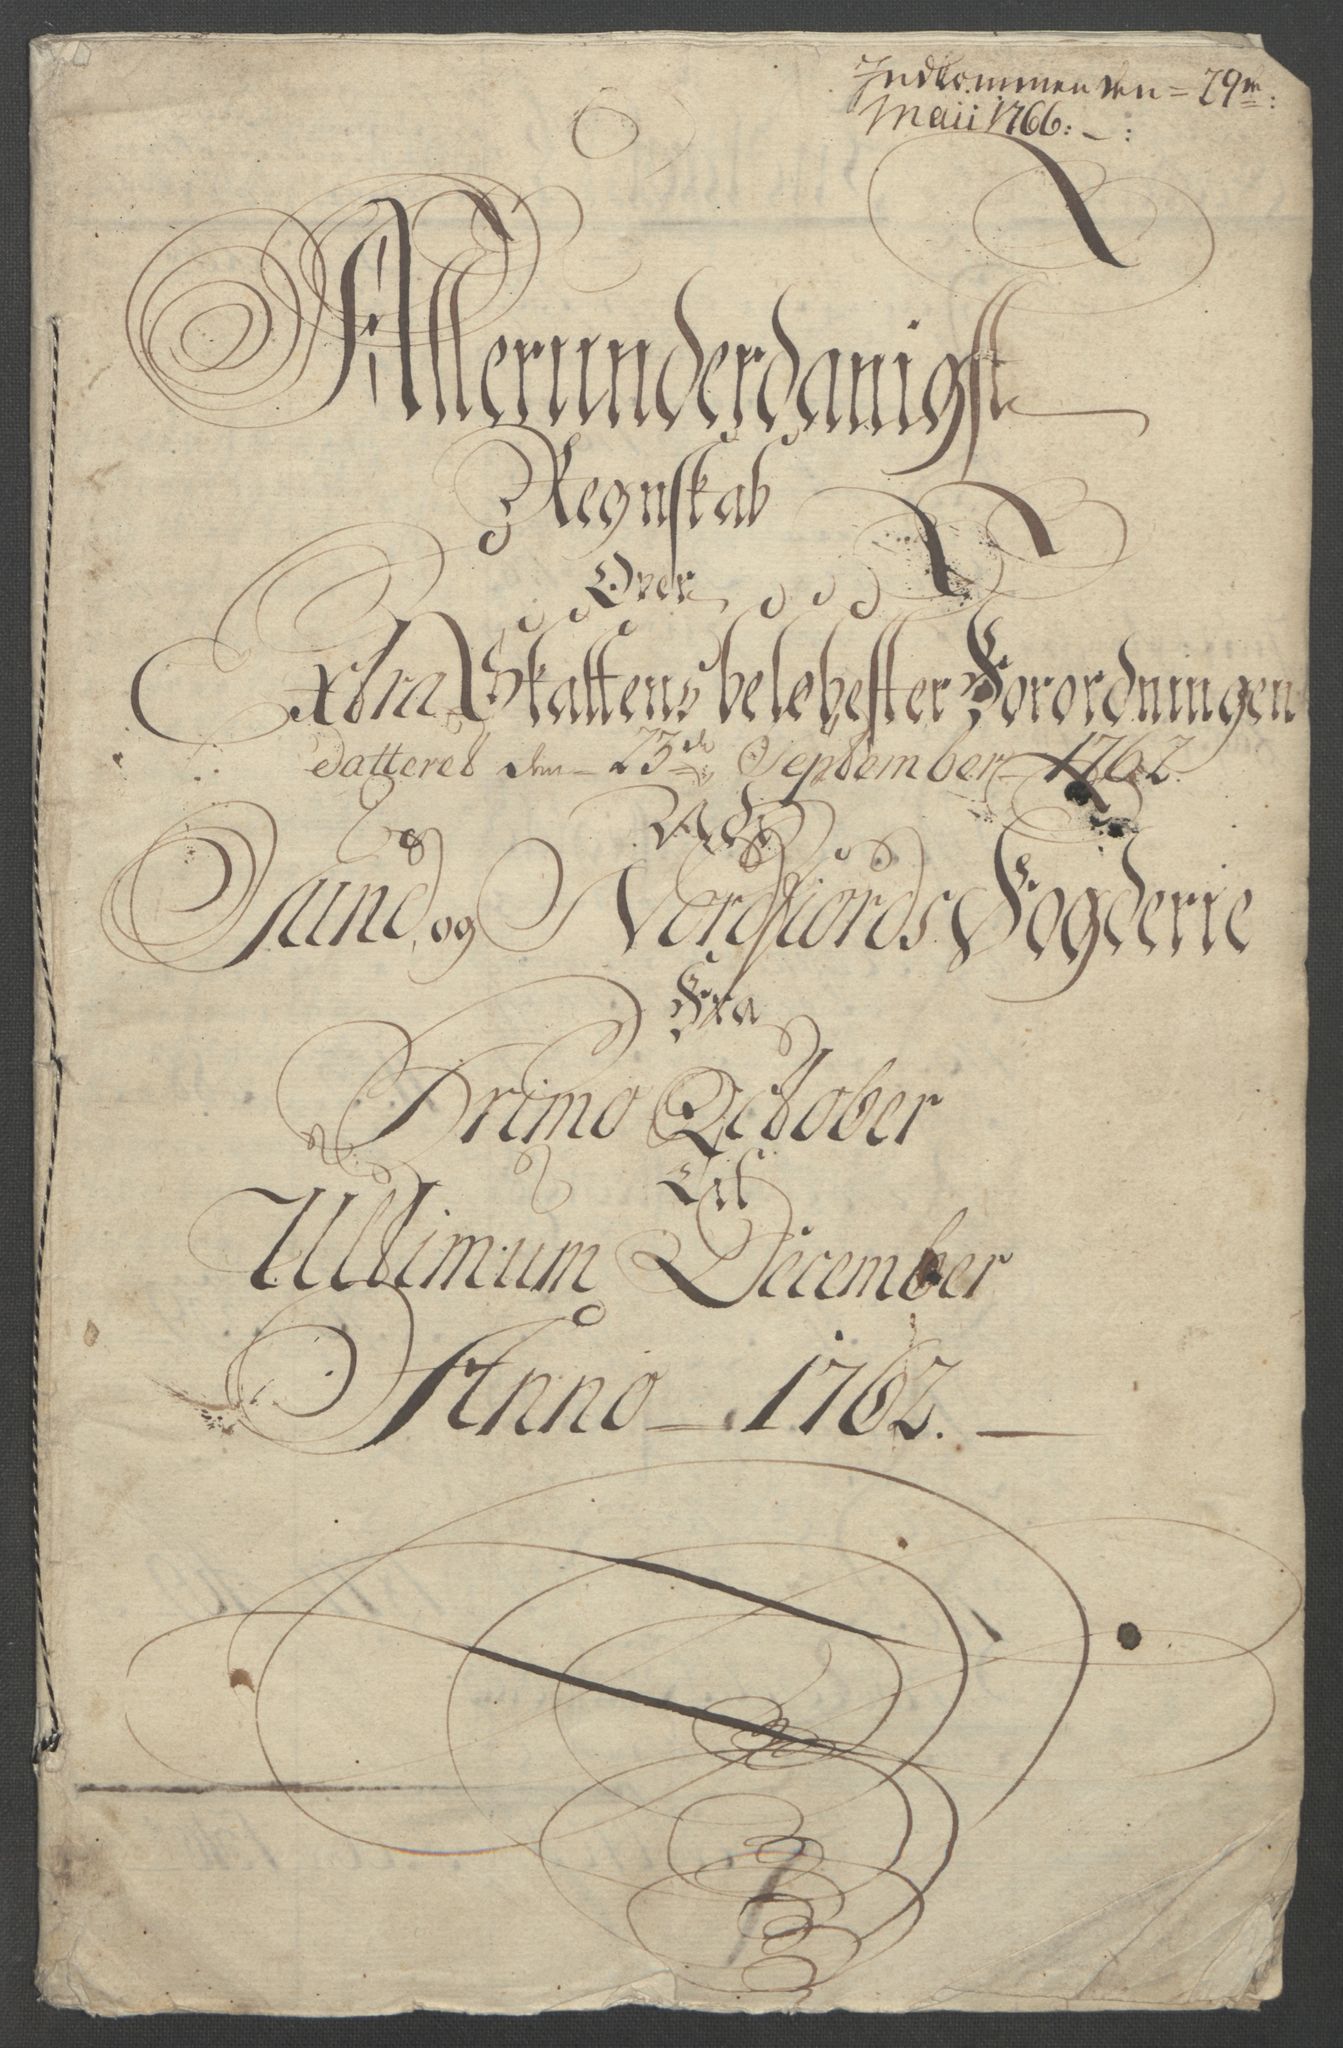 Indkommen den = 29de:
Maii 1766: - :
Allerunderdanigst
Regnskab
Over
Extra Skattens beløb efter Forordningen
datteret den = 23de September 1762.
Af
Sund og Nordfiords Fogderie
Fra
Primo October
Til
Ultimum December
Anno - 1762. -